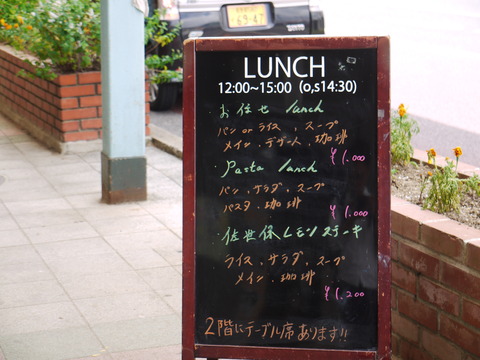 69-47
LUNCH
12:00~15:00 (o,s14:30)
・お任せ lunch
パン or ライス、スープ
メイン、デザート、珈琲
¥1.000
・Pasta lunch
パン、サラダ、スープ
パスタ、珈琲
¥1.000
・佐世保レモンステーキ
ライス、サラダ、スープ
メイン、珈琲
¥1.200
2階にテーブル席あります!!